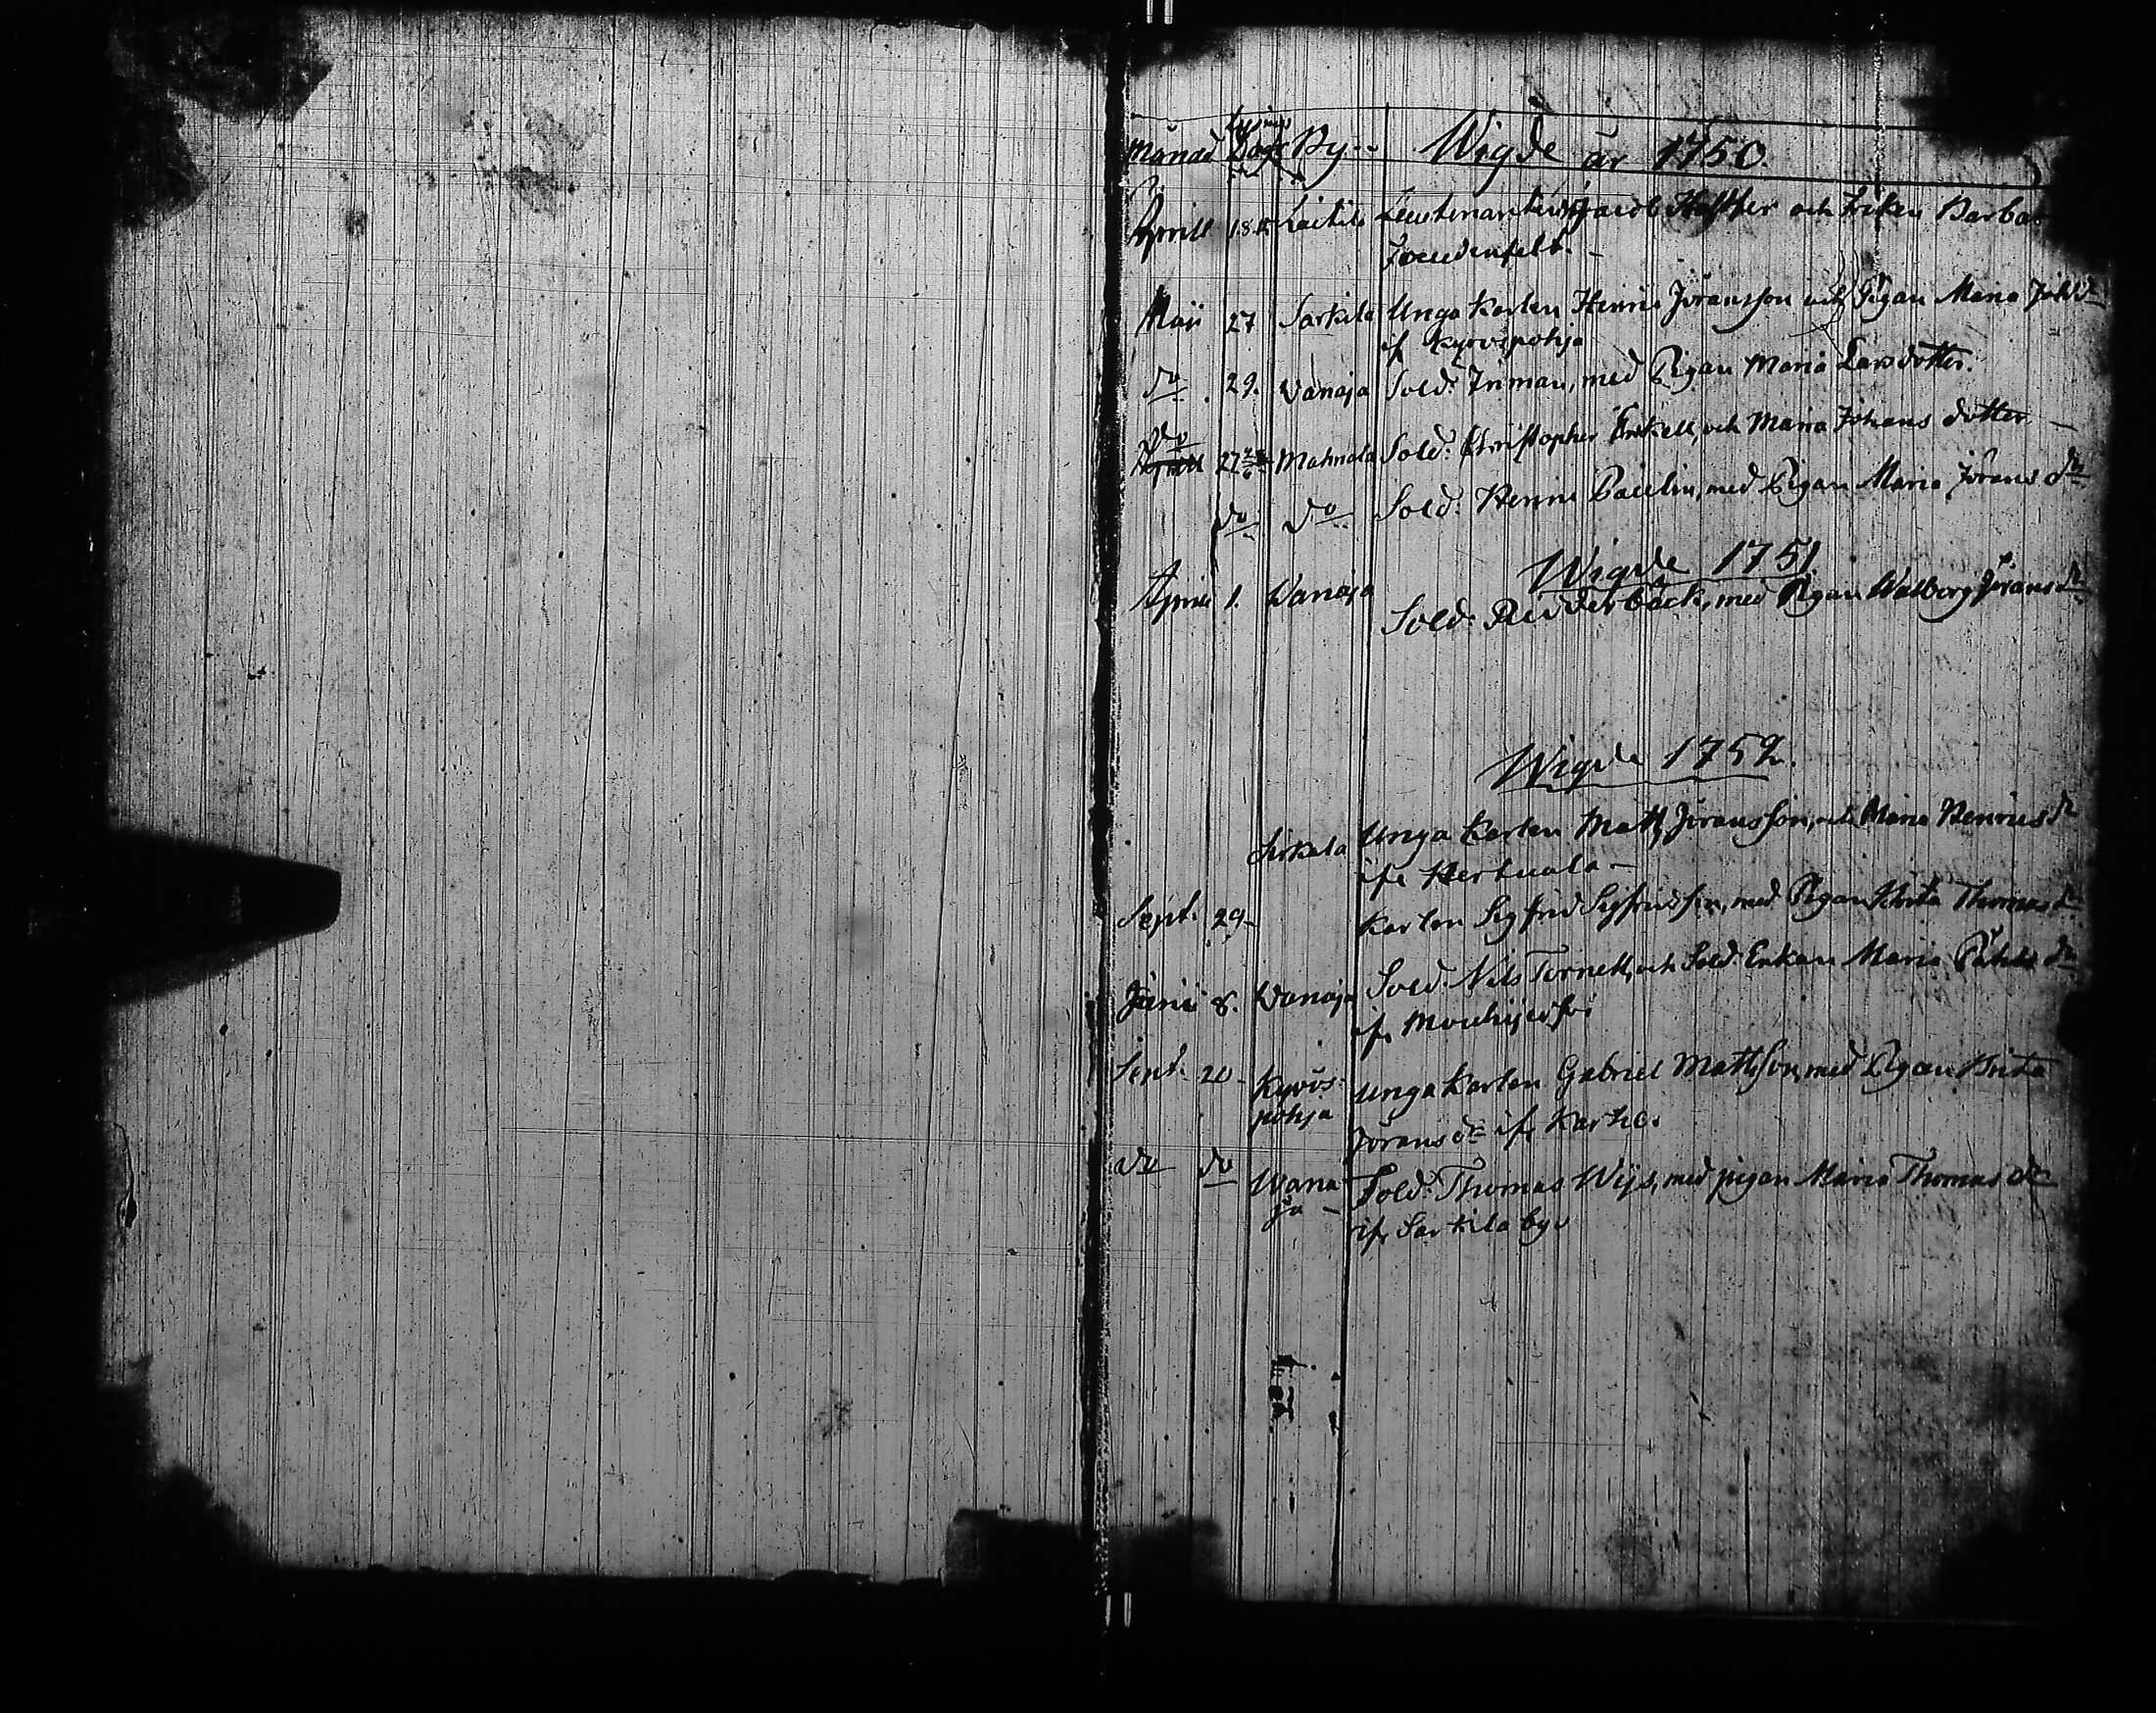 Månad Lysnings Dagr By Wigde år 1750.
Aprill 18 Laitila Lieutenanten Jacob och Fröken Barba
Freudenfelt.
Maji 27 Sarkila Unga Karlen Henric Jöransson och Pigan Maria Joh. dr
if Kyröspohja
do 29. Vanaja Sold. Inman, med Pigan Maria Larsdotter.
do 27 Mahnala Sold. Christopher Enkell, och Maria Johans dotter
do do Sold. Henric Paulin, med Pigan Maria Jörans dr
Wigde 1751
April 1. Wanaja Sold. Ridderback, med Pigan Walborg Jörans dr
Wigde 1752.
Sirkala Unga Karlen Matts Jöransson, och Maria Henrics dr
ifr Hertuala
Sept. 29 Karlen Sigfrid Sigfridsson, med Pigan Brita Thomas dr
Junii 8. Wanaja Sold. Nils Tornell, och Sold. Enkan Maria Påhls dr
ifr Mouhijerfvi
Sept. 20 Kyrös-
pohja Unga Karlen Gabriel Mattsson, med Pigan Brita
Jörans dr ifr Karhe.
do do Wana
ja Sold. Thomas Wijs, med pigan Maria Thomas dr
ifr Sarkila by